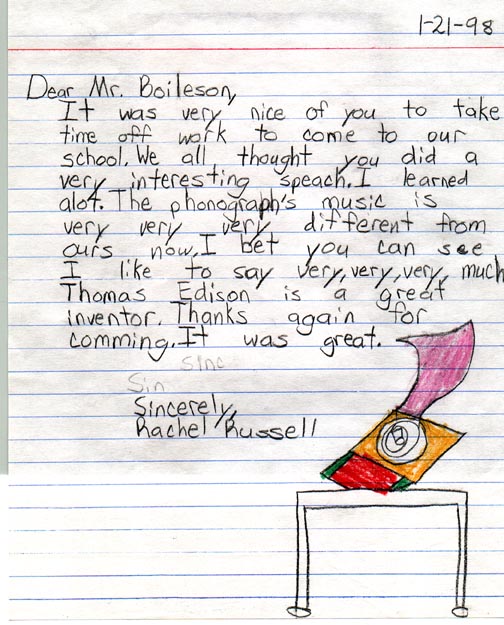 1-21-98
Dear Mr. Boileson,
It was very nice of you to take
time off work to come to our
school. We all thought you did a
very interesting speach. I learned
alot. The phonograph's music is
very very very different from
ours now. I bet you can see
I like to say very, very, very, much
Thomas Edison is a great
inventor. Thanks again for
comming. It was great.
Sinc
Sin
Sincerely,
Rachel Russell